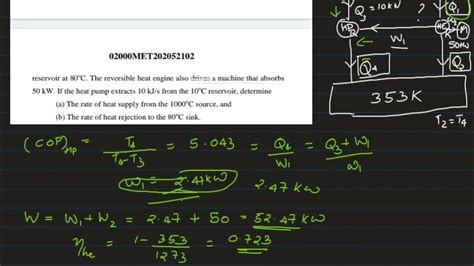 Q₃ = 10kW
?
Q₁
HP
HE
M
W₁
50kW
Q₄
Q₂
353K
T₂ = T₄
02000MET202052102
reservoir at 80°C. The reversible heat engine also drives a machine that absorbs
50 kW. If the heat pump extracts 10 kJ/s from the 10°C reservoir, determine
(a) The rate of heat supply from the 1000°C source, and
(b) The rate of heat rejection to the 80°C sink.
(COP)HP = T₄ / (T₄-T₃) = 5.043 = Q₄ / W₁ = (Q₃ + W₁) / W₁
W₁ = 2.47kW 2.47 kW
W = W₁ + W₂ = 2.47 + 50 = 52.47 kW
ηhe = 1 - 353 / 1273 = 0.723